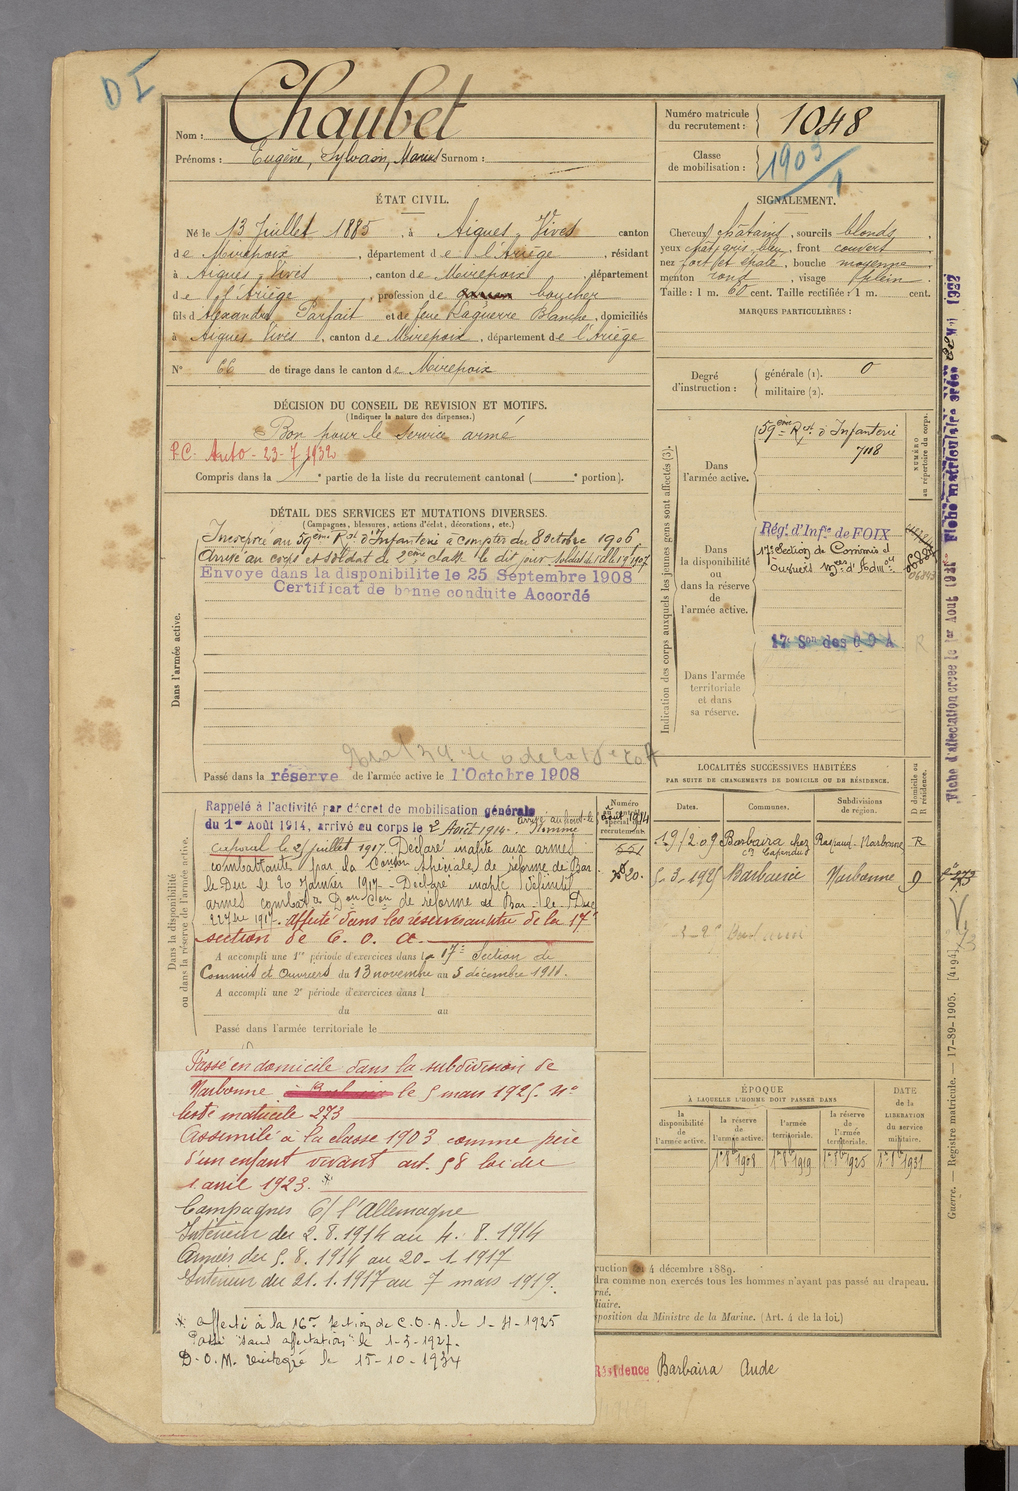 D I
Nom : Chaubet
Prénoms : Eugène, Sylvain, Marius Surnom :
Numéro matricule du recrutement : 1048
Classe de mobilisation : 1903/1
ÉTAT CIVIL.
Né le 13 Juillet 1885, à Aigues-Vives canton
de Mirepoix, département de l'Ariège, résidant
à Aigues-Vives, canton de Mirepoix, département
de l'Ariège, profession de boucher
fils d'Alexandre Parfait et de feue Laguerre Blanche, domiciliés
à Aigues Vives, canton de Mirepoix, département de l'Ariège
N° 66 de tirage dans le canton de Mirepoix
SIGNALEMENT.
Cheveux châtains, sourcils blonds,
yeux chât. gris, front couvert
nez fort et épaté, bouche moyenne
menton rond, visage plein.
Taille : 1 m. 60 cent. Taille rectifiée : 1 m. cent.
MARQUES PARTICULIÈRES :
Degré d'instruction : générale (1). 0
militaire (2).
DÉCISION DU CONSEIL DE REVISION ET MOTIFS.
(Indiquer la nature des dispenses.)
Bon pour le service armé
P.C. Auto - 23-7-1932
Compris dans la 1e partie de la liste du recrutement cantonal ( e portion).
DÉTAIL DES SERVICES ET MUTATIONS DIVERSES.
(Campagnes, blessures, actions d'éclat, décorations, etc.)
Dans l'armée active.
Incorporé au 59ème Rgt d'Infanterie à compter du 8 octobre 1906
Arrivé au corps et soldat de 2ème classe le dit jour. Soldat de 1e cl le 19 1907
Envoyé dans la disponibilité le 25 Septembre 1908
Certificat de bonne conduite Accordé
Passé dans la réserve de l'armée active le 1 Octobre 1908
Indication des corps auxquels les jeunes gens sont affectés (3).
NUMÉRO au répertoire du corps.
Dans l'armée active.
59ème Rgt d'Infanterie
7118
Dans la disponibilité ou dans la réserve de l'armée active.
Régt d'Infie de FOIX
17e Section de Commis et
ouvriers mres d'Admon
17e Son des C O A
R
Dans l'armée territoriale et dans sa réserve.
Dans la disponibilité ou dans la réserve de l'armée active.
Rappelé à l'activité par décret de mobilisation générale
du 1er Août 1914, arrivé au corps le 2 Août 1914. Nommé
caporal le 2 juillet 1917. Déclaré inapte aux armes
combattantes par la Comon spéciale de réforme de Bar
le Duc le 20 Janvier 1917 - Déclaré inapte définitif
armes combattes Don Con de réforme de Bar-le-Duc
1917. Affecté dans les réserves au titre de la 17e
section de C. O. A.
A accompli une 1re période d'exercices dans la 17e Section de
Commis et Ouvriers du 13 novembre au 5 décembre 1911.
A accompli une 2e période d'exercices dans l
du au
Passé dans l'armée territoriale le
LOCALITÉS SUCCESSIVES HABITÉES
PAR SUITE DE CHANGEMENTS DE DOMICILE OU DE RÉSIDENCE.
D domicile ou R résidence.
Dates. Communes. Subdivisions de région.
19/2 09 Barbaira chez Raynaud - Narbonne R
con Capendu
5-3-1925 Barbaira Narbonne D
Passé en domicile dans la subdivision de
Narbonne le 5 mars 1925. No
liste matricule 273
Assimilé à la classe 1903 comme père
d'un enfant vivant art. 58 loi du
1 avril 1923. *
Campagnes C/ l'Allemagne
Intérieur du 2.8.1914 au 4.8.1914
Armées du 5.8.1914 au 20-1-1917
Intérieur du 21.1.1917 au 7 mars 1919.
* affecté à la 16e section de C.O.A. le 1-4-1925
Passé "sans affectation" le 1-5-1927.
D.O.M. réintégré le 15-10-1934
ÉPOQUE
À LAQUELLE L'HOMME DOIT PASSER DANS
DATE de la LIBÉRATION du service militaire.
la disponibilité de l'armée active.
la réserve de l'armée active.
l'armée territoriale.
la réserve de l'armée territoriale.
1er 8bre 1908 1er 8bre 1919 1er 8bre 1925 1er 8bre 1931
ruction du 4 décembre 1889.
dra comme non exercés tous les hommes n'ayant pas passé au drapeau.
rné.
liaire.
sposition du Ministre de la Marine. (Art. 4 de la loi.)
Résidence Barbaira Aude
Guerre. — Registre matricule. — 17-89-1905. [4194]
Fiche d'affectation créée le 1er Août 1918
Fiche matriculaire créée 1922